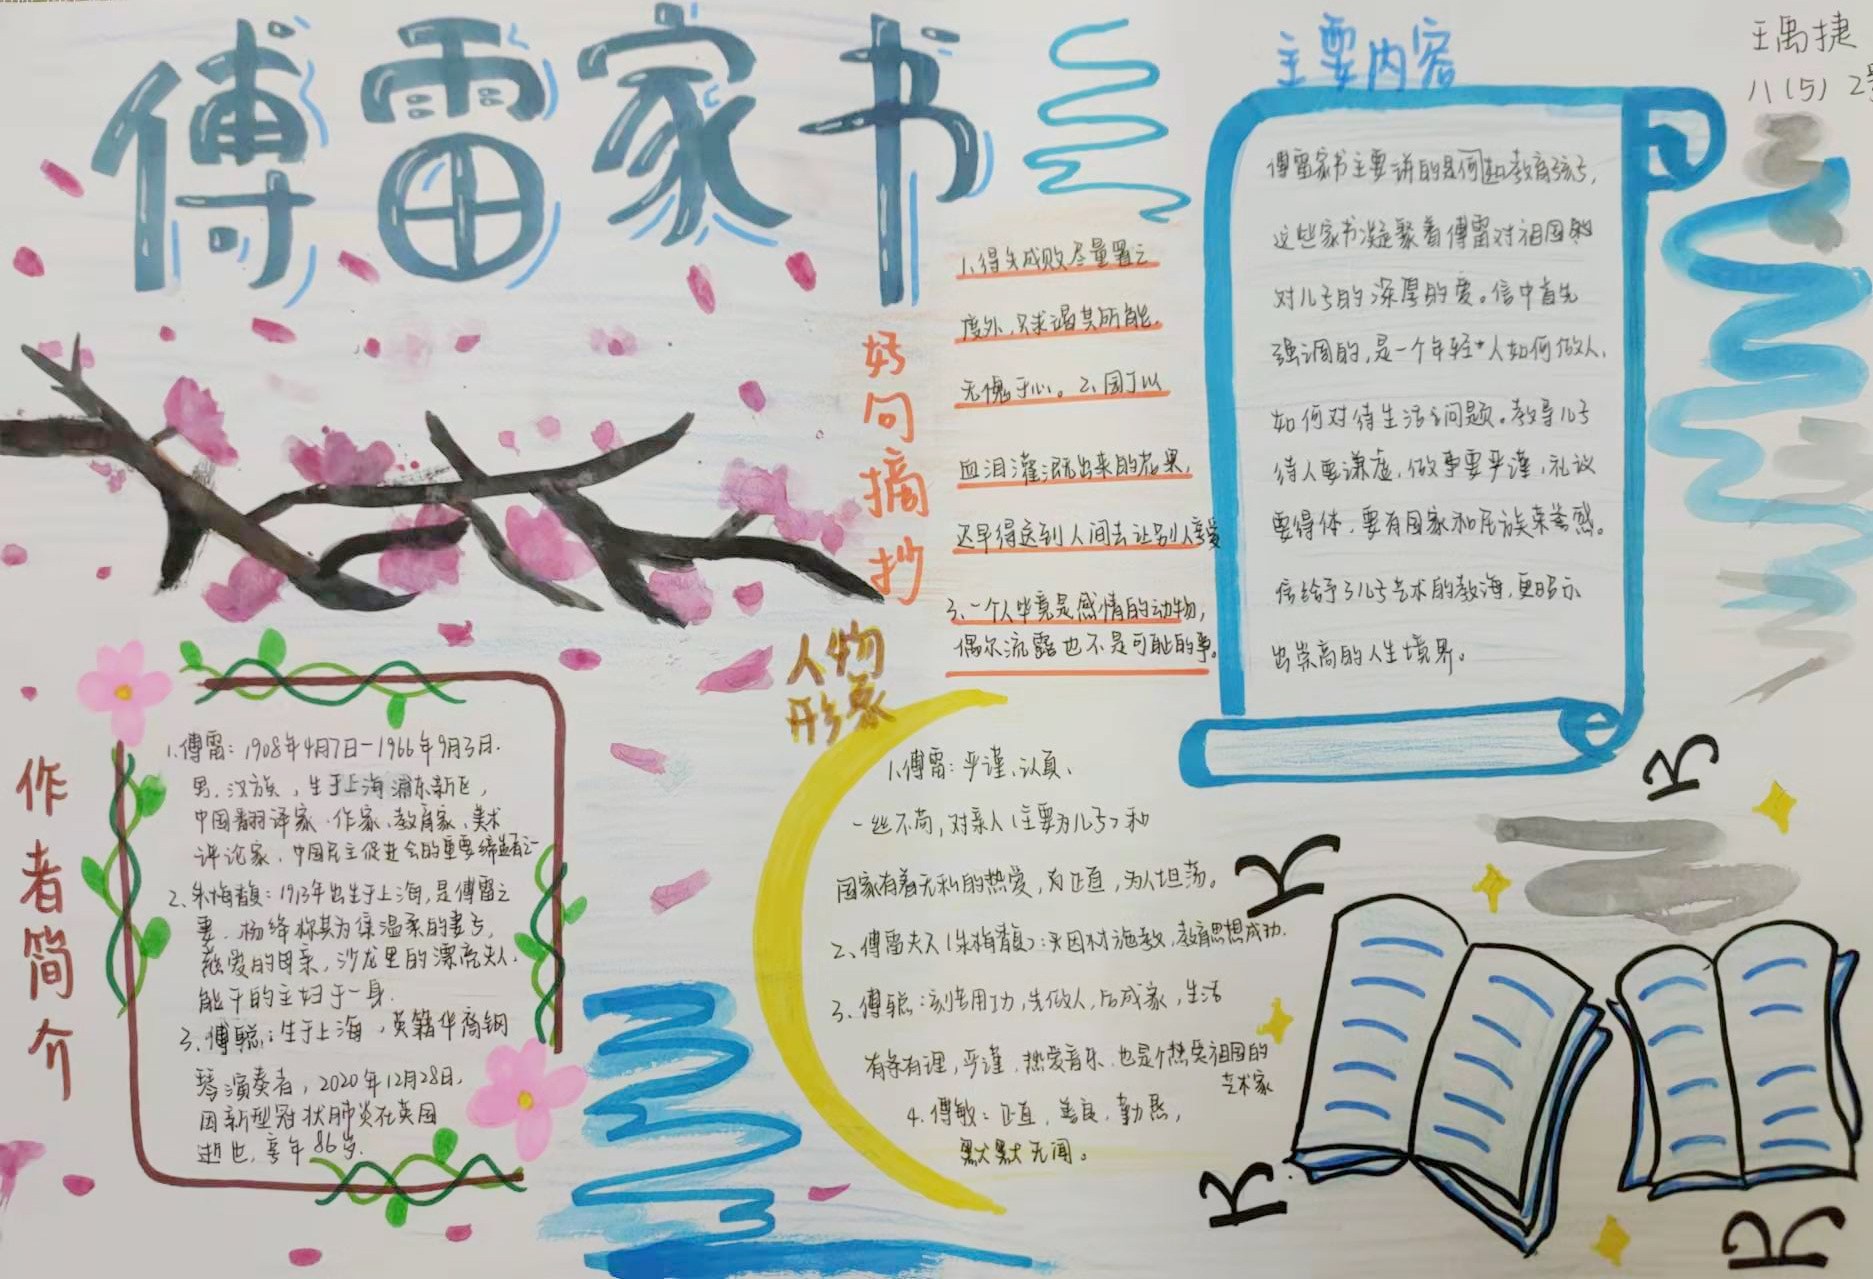 傅雷家书
王禹捷
八(5) 2号
作者简介
1.傅雷：1908年4月7日-1966年9月3日.
男、汉族，生于上海浦东新区，
中国翻译家、作家、教育家、美术
评论家、中国民主促进会的重要缔造者之一
2、朱梅馥：1913年出生于上海，是傅雷之
妻.杨绛称其为集温柔的妻子，
慈爱的母亲，沙龙里的漂亮夫人.
能干的主妇于一身.
3、傅聪：生于上海，英籍华裔钢
琴演奏者，2020年12月28日.
因新型冠状肺炎在英国
逝世，享年86岁.
好句摘抄
1、得失成败尽量置之
度外，只求竭其所能.
无愧于心。2、国于以
血泪灌溉出来的花果，
迟早得送到人间去让别人享受
3、一个人毕竟是感情的动物，
偶尔流露也不是可耻的事。
主要内容
傅雷家书主要讲的是何如教育孩子，
这些家书凝聚着傅雷对祖国
对儿子的深厚的爱。信中首先
强调的，是一个年轻人如何做人、
如何对待生活的问题。教导儿子
待人要谦虚，做事要严谨，礼议
要得体，要有国家和民族荣誉感。
信给予了儿子艺术的教诲，更昭示
出崇高的人生境界。
人物
形象
1.傅雷：严谨、认真、
一丝不苟，对亲人(主要为儿子)和
国家有着无私的热爱，为正直，为人坦荡。
2、傅雷夫人(朱梅馥)：因材施教，教育思想成功.
3、傅聪：刻苦用功，先做人，后成家，生活
有条有理，严谨，热爱音乐、也是个热爱祖国的
艺术家
4、傅敏：正直，善良，勤恳，
默默无闻。